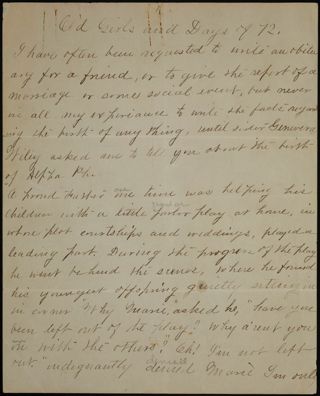 Old Girls and Days of 72.
I have often been requested to write an obitu
ary for a friend, or to give the report of a
marriage or some social event, but never
in all my experience to write the facts regard
ing the birth of any thing, until sister Genevera
Wiley asked me to tell you about the birth
of Alpha Phi.
A proud Father one time was helping his
children with a little parlor play at home, in
whose plot courtships and weddings, played a
leading part. During the progress of the play
he went behind the scenes, where he found
his youngest offspring quietly sitting
in corner "Why Marie," asked he, "have you
been left out of the play? Why aren't you
with the others?" Oh! I'm not left
out," indignantly denied Marie I'm only